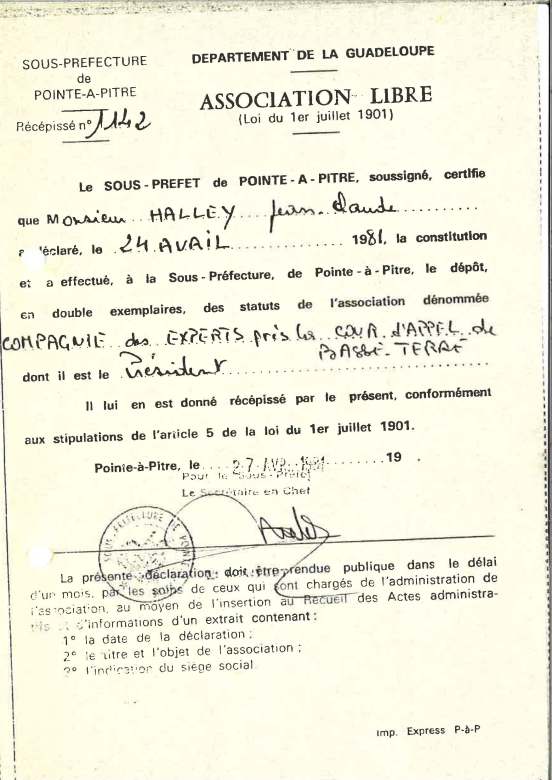 SOUS-PREFECTURE
de
POINTE-A-PITRE
Récépissé n° 1142
DEPARTEMENT DE LA GUADELOUPE
ASSOCIATION LIBRE
(Loi du 1er juillet 1901)
Le SOUS-PREFET de POINTE-A-PITRE, soussigné, certifie
que Monsieur HALLEY Jean-Claude
a déclaré, le 24 AVRIL 1981, la constitution
et a effectué, à la Sous-Préfecture, de Pointe-à-Pitre, le dépôt,
en double exemplaires, des statuts de l'association dénommée
COMPAGNIE des EXPERTS près la COUR d'APPEL de
BASSE-TERRE
dont il est le Président
Il lui en est donné récépissé par le présent, conformément
aux stipulations de l'article 5 de la loi du 1er juillet 1901.
Pointe-à-Pitre, le 27 AVR. 1981 19 .
Pour le Sous-Préfet
Le Secrétaire en Chef
SOUS-PREFECTURE DE POINTE
La présente déclaration doit être rendue publique dans le délai
d'un mois, par les soins de ceux qui sont chargés de l'administration de
l'association, au moyen de l'insertion au Recueil des Actes administra-
tifs et d'informations d'un extrait contenant :
1° la date de la déclaration ;
2° le titre et l'objet de l'association ;
3° l'indication du siège social.
Imp. Express P-à-P